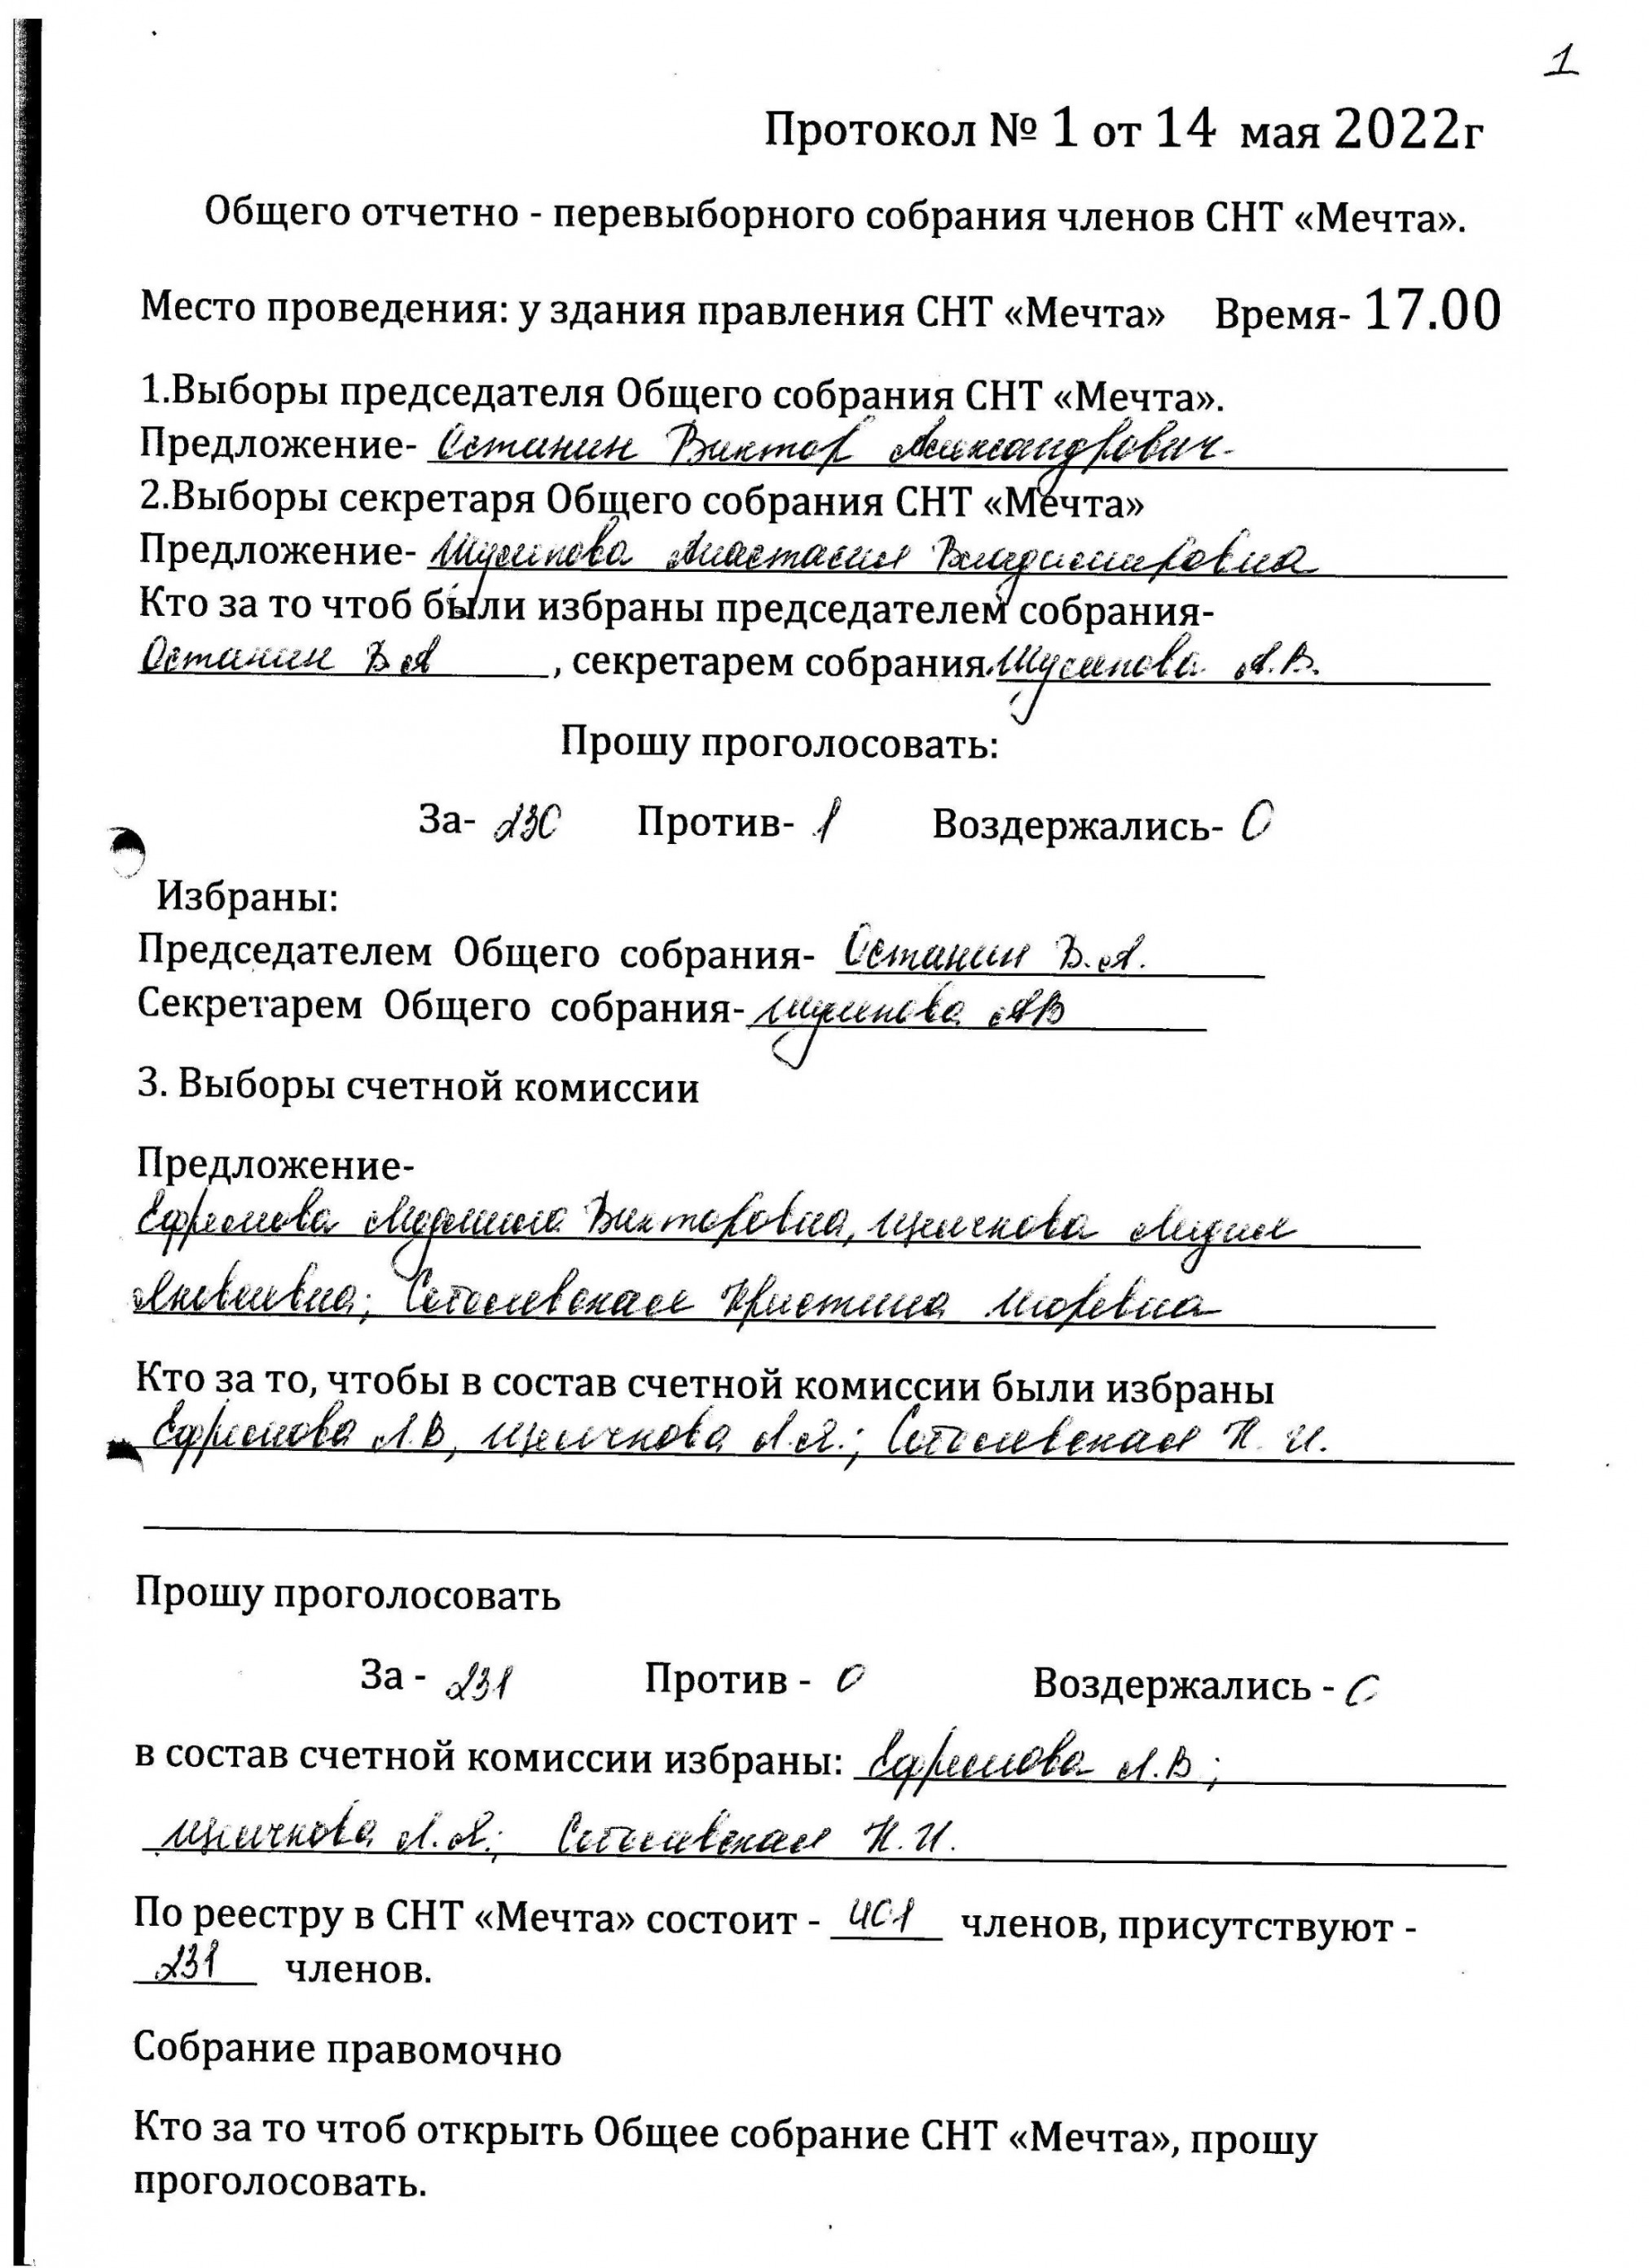 1
Протокол № 1 от 14 мая 2022г
Общего отчетно - перевыборного собрания членов СНТ «Мечта».
Место проведения: у здания правления СНТ «Мечта» Время- 17.00
1.Выборы председателя Общего собрания СНТ «Мечта».
Предложение- Останин Виктор Александрович
2.Выборы секретаря Общего собрания СНТ «Мечта»
Предложение- Анастасия Владимировна
Кто за то чтоб были избраны председателем собрания-
Останин В А , секретарем собрания А.В.
Прошу проголосовать:
За- 230 Против- 1 Воздержались- 0
Избраны:
Председателем Общего собрания- Останин В.А.
Секретарем Общего собрания- АВ
3. Выборы счетной комиссии
Предложение-
Ефремова Людмила Викторовна, Лидия
Яковлевна; Соболевская Кристина
Кто за то, чтобы в состав счетной комиссии были избраны
Ефремова Л.В, Л.Я.; Соболевская К. И.
Прошу проголосовать
За - 231 Против - 0 Воздержались - 0
в состав счетной комиссии избраны: Ефремова Л.В ;
Л.Я.; Соболевская К.И.
По реестру в СНТ «Мечта» состоит - 401 членов, присутствуют -
231 членов.
Собрание правомочно
Кто за то чтоб открыть Общее собрание СНТ «Мечта», прошу
проголосовать.